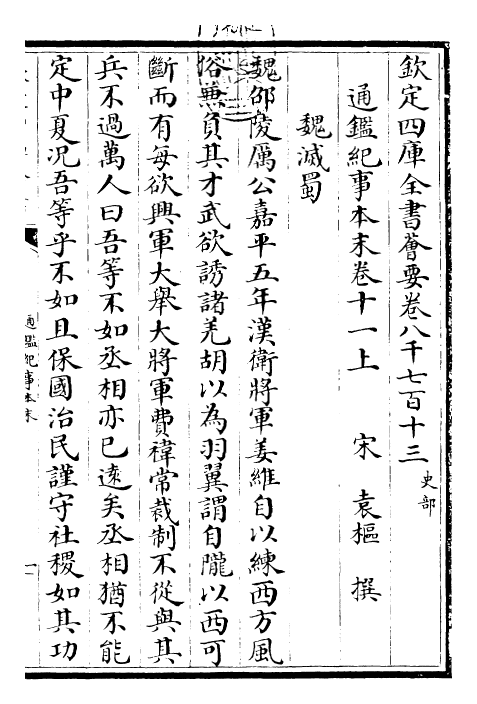 欽定四庫全書薈要卷八千七百十三
史部
通鑑紀事本末卷十一上　宋　袁樞　撰
魏滅蜀
魏邵陵厲公嘉平五年漢衛將軍姜維自以練西方風
俗兼負其才武欲誘諸羌胡以為羽翼謂自隴以西可
斷而有每欲興軍大舉大將軍費禕常裁制不從與其
兵不過萬人曰吾等不如丞相亦已遠矣丞相猶不能
定中夏況吾等乎不如且保國治民謹守社稷如其功
通鑑紀事本末
一